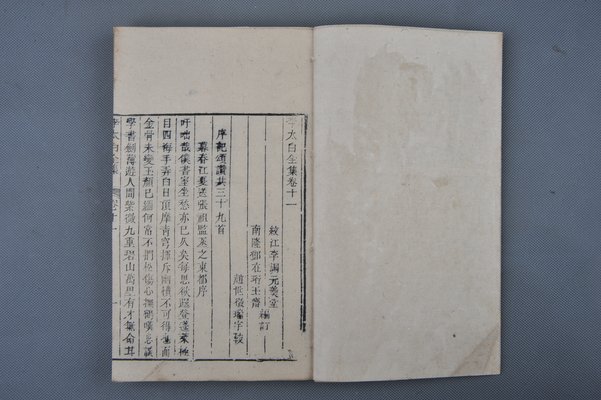 李太白全集卷十一
綾江李調元羹堂
南隆鄧在珩玉齋 編訂
趙 字较
序記頌讚共三十九首
暮春江夏送張祖監丞之東都序
吁咄哉僕書室坐愁亦已久矣每思欲遐登蓬萊極
目四海手弄白日頂摩青穹揮斥幽憤不可得也而
金骨未變玉顏已緇何嘗不捫松傷心撫鶴嘆息誤
學書劍薄遊人間紫微九重碧山萬里有才無命甘
李太白全集 卷十一 一